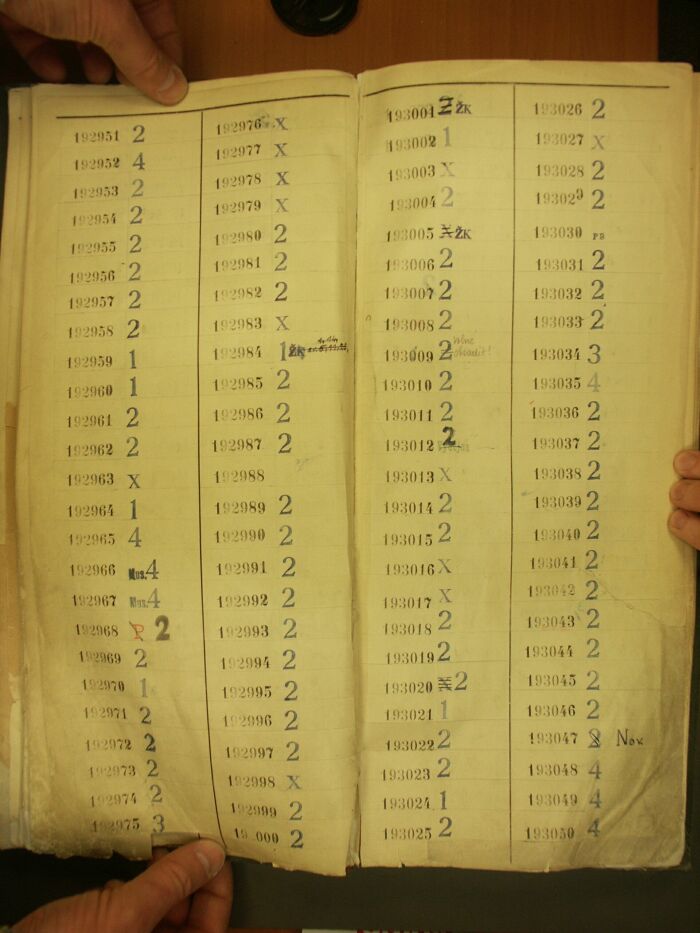 192951 2
192952 4
192953 2
192954 2
192955 2
192956 2
192957 2
192958 2
192959 1
192960 1
192961 2
192962 2
192963 X
192964 1
192965 4
192966 Mus. 4
192967 Mus. 4
192968 P 2
192969 2
192970 1
192971 2
192972 2
192973 2
192974 2
192975 3
192976 X
192977 X
192978 X
192979 X
192980 2
192981 2
192982 2
192983 X
192984 1 ŽK
192985 2
192986 2
192987 2
192988
192989 2
192990 2
192991 2
192992 2
192993 2
192994 2
192995 2
192996 2
192997 2
192998 X
192999 2
19 000 2
193001 2 ŽK
193002 1
193003 X
193004 2
193005 X ŽK
193006 2
193007 2
193008 2
193009 2
193010 2
193011 2
193012 2
193013 X
193014 2
193015 2
193016 X
193017 X
193018 2
193019 2
193020 X 2
193021 1
193022 2
193023 2
193024 1
193025 2
193026 2
193027 X
193028 2
193029 2
193030
193031 2
193032 2
193033 2
193034 3
193035 4
193036 2
193037 2
193038 2
193039 2
193040 2
193041 2
193042 2
193043 2
193044 2
193045 2
193046 2
193047 2 Nov.
193048 4
193049 4
193050 4